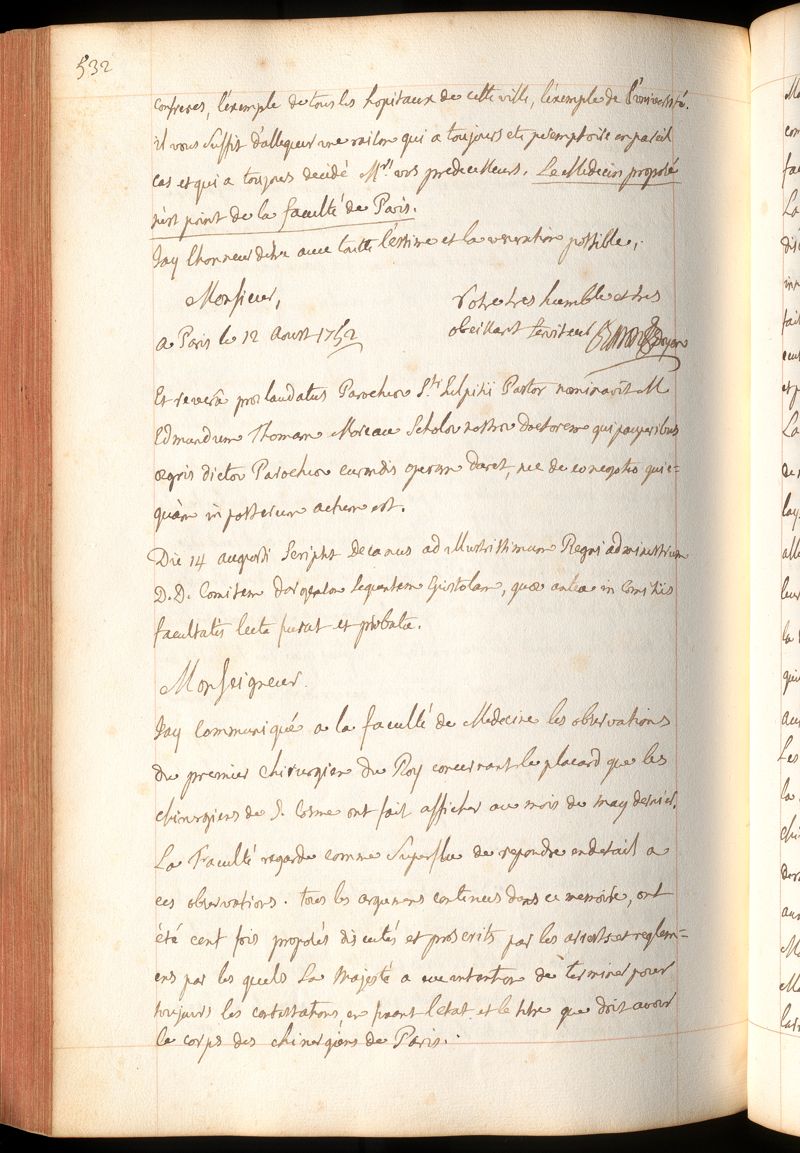 532
confreres, l'exemple de tous les hopitaux de cette ville, l'exemple de l'université.
il vous suffit d'alleguer une raison qui a toujours eté peremptoire en pareil
cas et qui a toujours decidé Mrs vos predecesseurs. Le Medecin proposé
n'est point de la faculté de Paris.
J'ay l'honneur d'etre avec toutte l'estime et la veneration possible,
Monsieur,
Votre tres humble et tres
a Paris le 12 Aoust 1752
obeissant serviteur Doyen
Et revera praelaudatus Parochiae Sti Sulpitii Pastor nominavit M
Edmundum Thomam Moreau Scholae nostrae doctorem qui pauperibus
aegris dictae Parochiae curandis operam daret, nec de eo negotio quic=
quam in posterum actum est.
Die 14 augusti Scripsit Decanus ad illustrissimum Regni administrum
D.D. Comitem d'argenson sequentem Epistolam, quae antea in Comitiis
facultatis lecta fuerat et probata.
Monseigneur.
J'ay Communiqué a la faculté de Medecine les observations
du premier chirurgien du Roy concernant le placard que les
chirurgiens de S. Cosme ont fait afficher au mois de may dernier.
La Faculté regarde comme superflu de repondre en detail a
ces observations. tous les argumens contenus dans ce memoire, ont
été cent fois proposés discutés et proscrits par les arrests et reglem=
ens par les quels Sa Majesté a eu intention de terminer pour
toujours les contestations en fixant l'etat et le titre que doit avoir
le corps des chirurgiens de Paris.